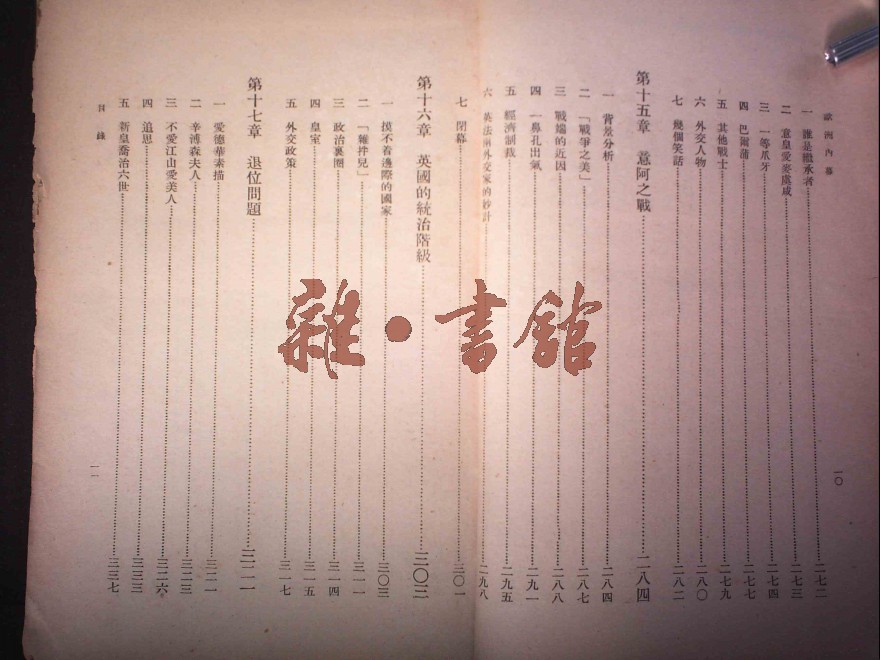 歐洲內幕
一〇
一 誰是繼承者 二七二
二 意皇愛麥虞咸 二七三
三 一等爪牙 二七四
四 巴爾蒲 二七七
五 其他戰士 二七九
六 外交人物 二八〇
七 幾個笑話 二八二
第十五章 意阿之戰 二八四
一 背景分析 二八四
二 「戰爭之美」 二八七
三 戰端的近因 二八八
四 一鼻孔出氣 二九一
五 經濟制裁 二九五
六 英法兩外交家的妙計 二九八
七 閉幕 三〇一
第十六章 英國的統治階級 三〇三
一 摸不着邊際的國家 三〇三
二 三一一
三 政治裏圈 三一四
四 皇室 三一五
五 外交政策 三一七
第十七章 退位問題 三二一
一 愛德華素描 三二一
二 辛溥森夫人 三二三
三 不愛江山愛美人 三二六
四 追思 三三三
五 新皇喬治六世 三三七
目錄
一一
雜·書館